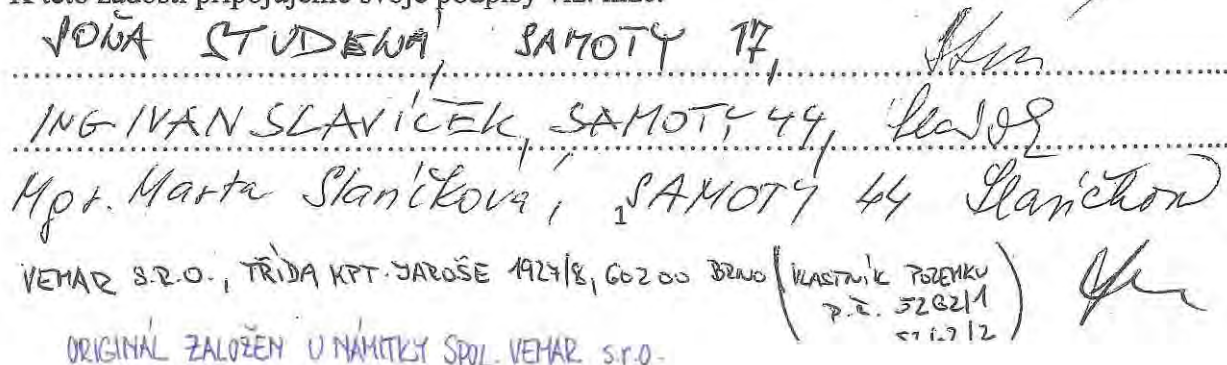 K této žádosti připojujeme svoje podpisy viz. níže.
SOŇA STUDENÁ, SAMOTY 17,
ING. IVAN SLAVÍČEK, SAMOTY 44,
Mgr. Marta Slavíčková, SAMOTY 44 Slavíčkov
1
VEMAR S.R.O., TŘÍDA KPT. JAROŠE 1927/8, 602 00 BRNO (VLASTNÍK POZEMKU
p.č. 5262/1
ORIGINÁL ZALOŽEN U NÁMITKY SPOL. VEMAR s.r.o.